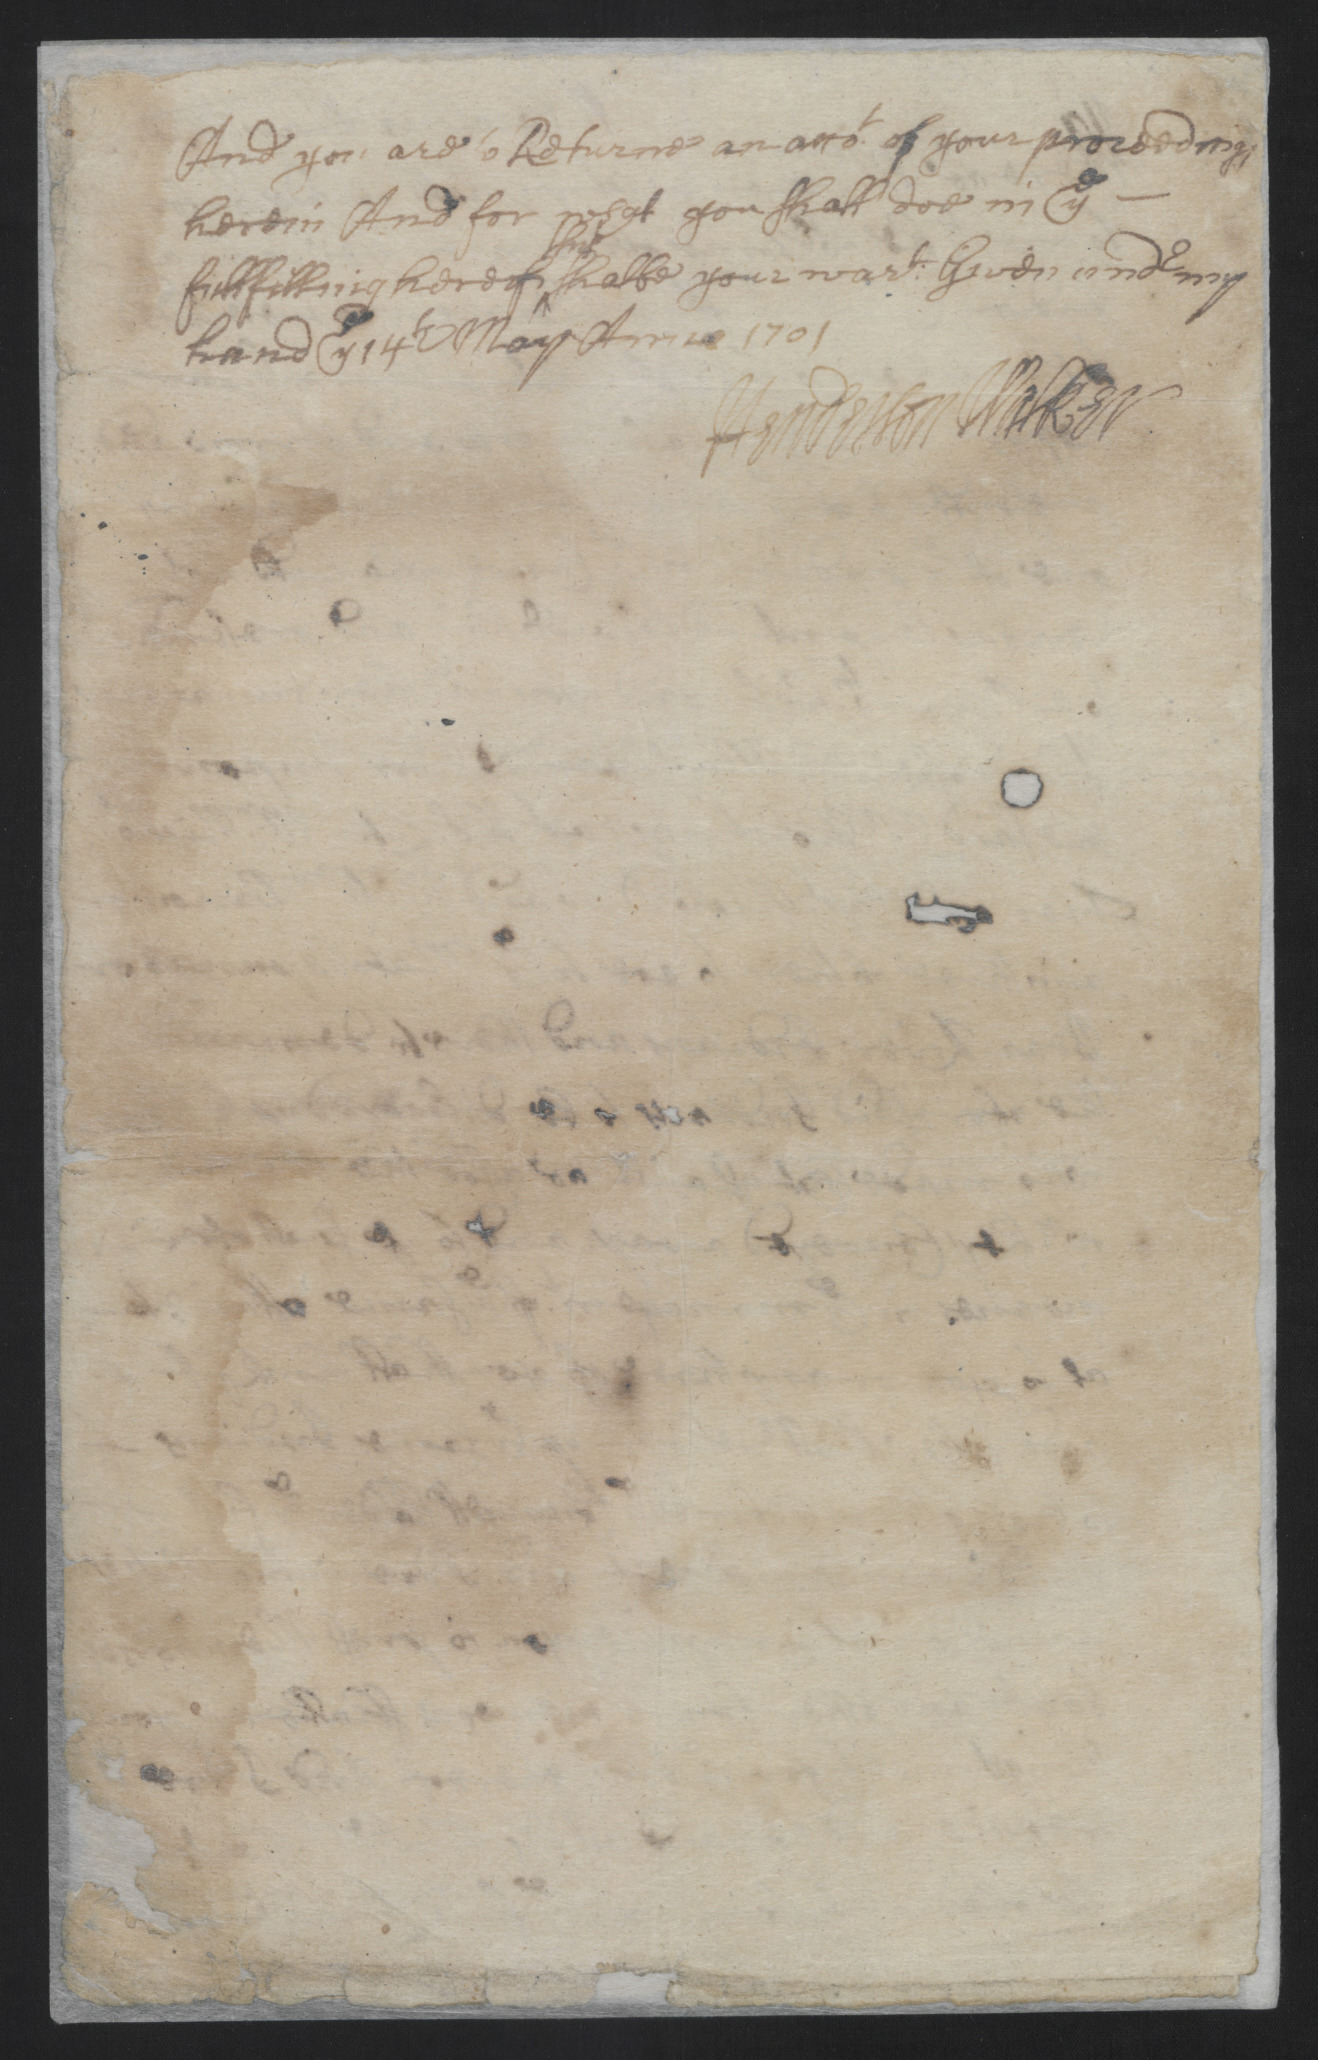 And you are to Returne an acco.t of your proceedings
herein And for what you shall doe in ye —
fullfilling hereof this shalbe your war.t Given unde.r my
hand ye 14th May Anno 1701
Henderson Walker